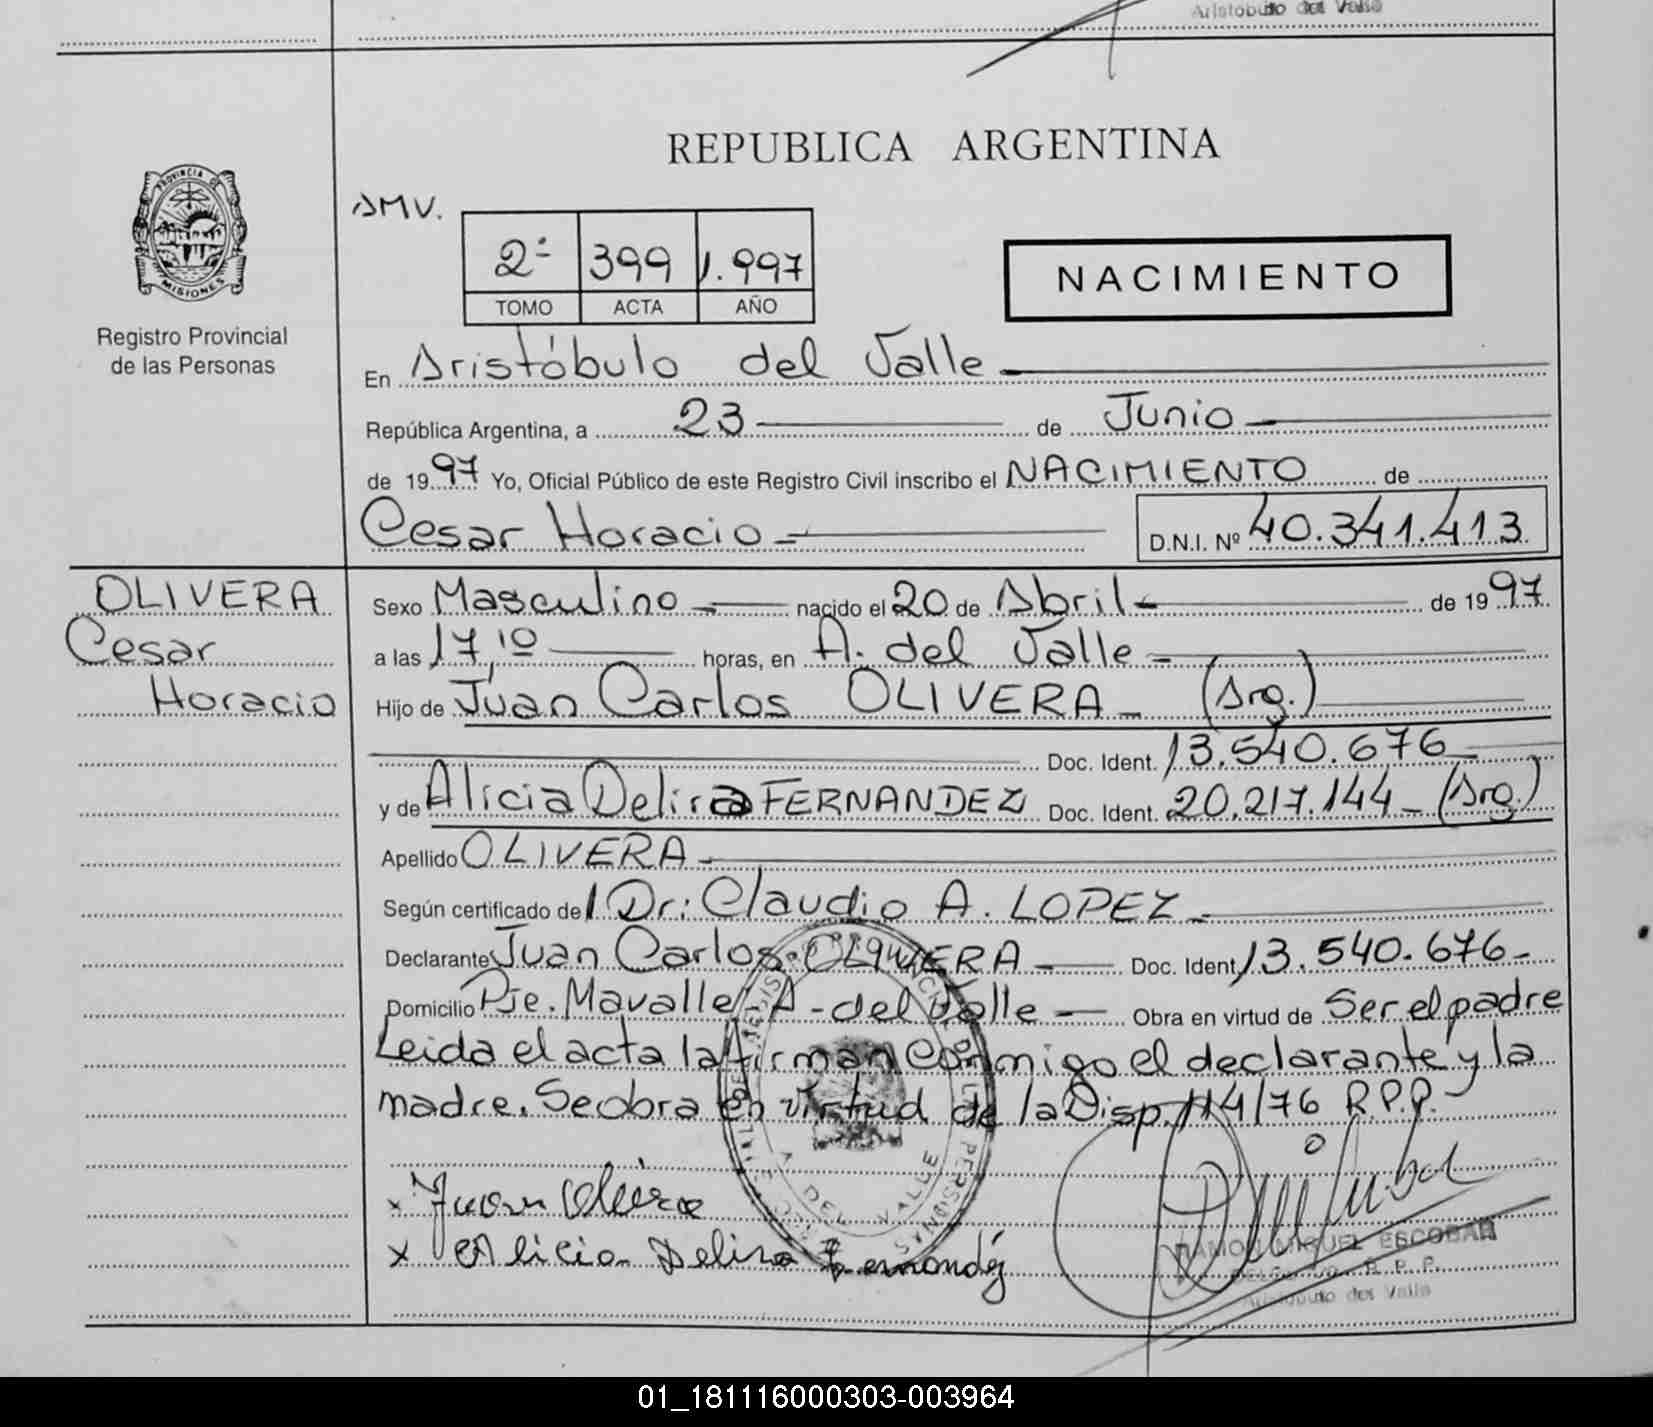 Aristobulo del Valle
REPUBLICA ARGENTINA
PROVINCIA DE
MISIONES
Registro Provincial
de las Personas
AMV.
2ª 399 1.997
TOMO ACTA AÑO
NACIMIENTO
En Aristóbulo del Valle
República Argentina, a 23 de Junio
de 1997 Yo, Oficial Público de este Registro Civil inscribo el NACIMIENTO de
Cesar Horacio D.N.I. Nº 40.341.413
OLIVERA
Cesar
Horacio
Sexo Masculino nacido el 20 de Abril de 1997
a las 17,10 horas, en A. del Valle
Hijo de Juan Carlos OLIVERA (Arg.)
Doc. Ident. 13.540.676
y de Alicia Delira FERNANDEZ Doc. Ident. 20.217.144 (Arg.)
Apellido OLIVERA
Según certificado del Dr: Claudio A. LOPEZ
Declarante Juan Carlos OLIVERA Doc. Ident 13.540.676
Domicilio Pje. Mavalle A. del Valle Obra en virtud de Ser el padre
Leida el acta la firman conmigo el declarante y la
madre. Se obra en virtud de la Disp. 114/76 R.P.P.
x Juan Olivera
x Alicia Delira Fernandez
A. DEL VALLE
RAMON MIGUEL ESCOBAR
DELEGADO R. P. P.
Aristobulo del Valle
01_181116000303-003964